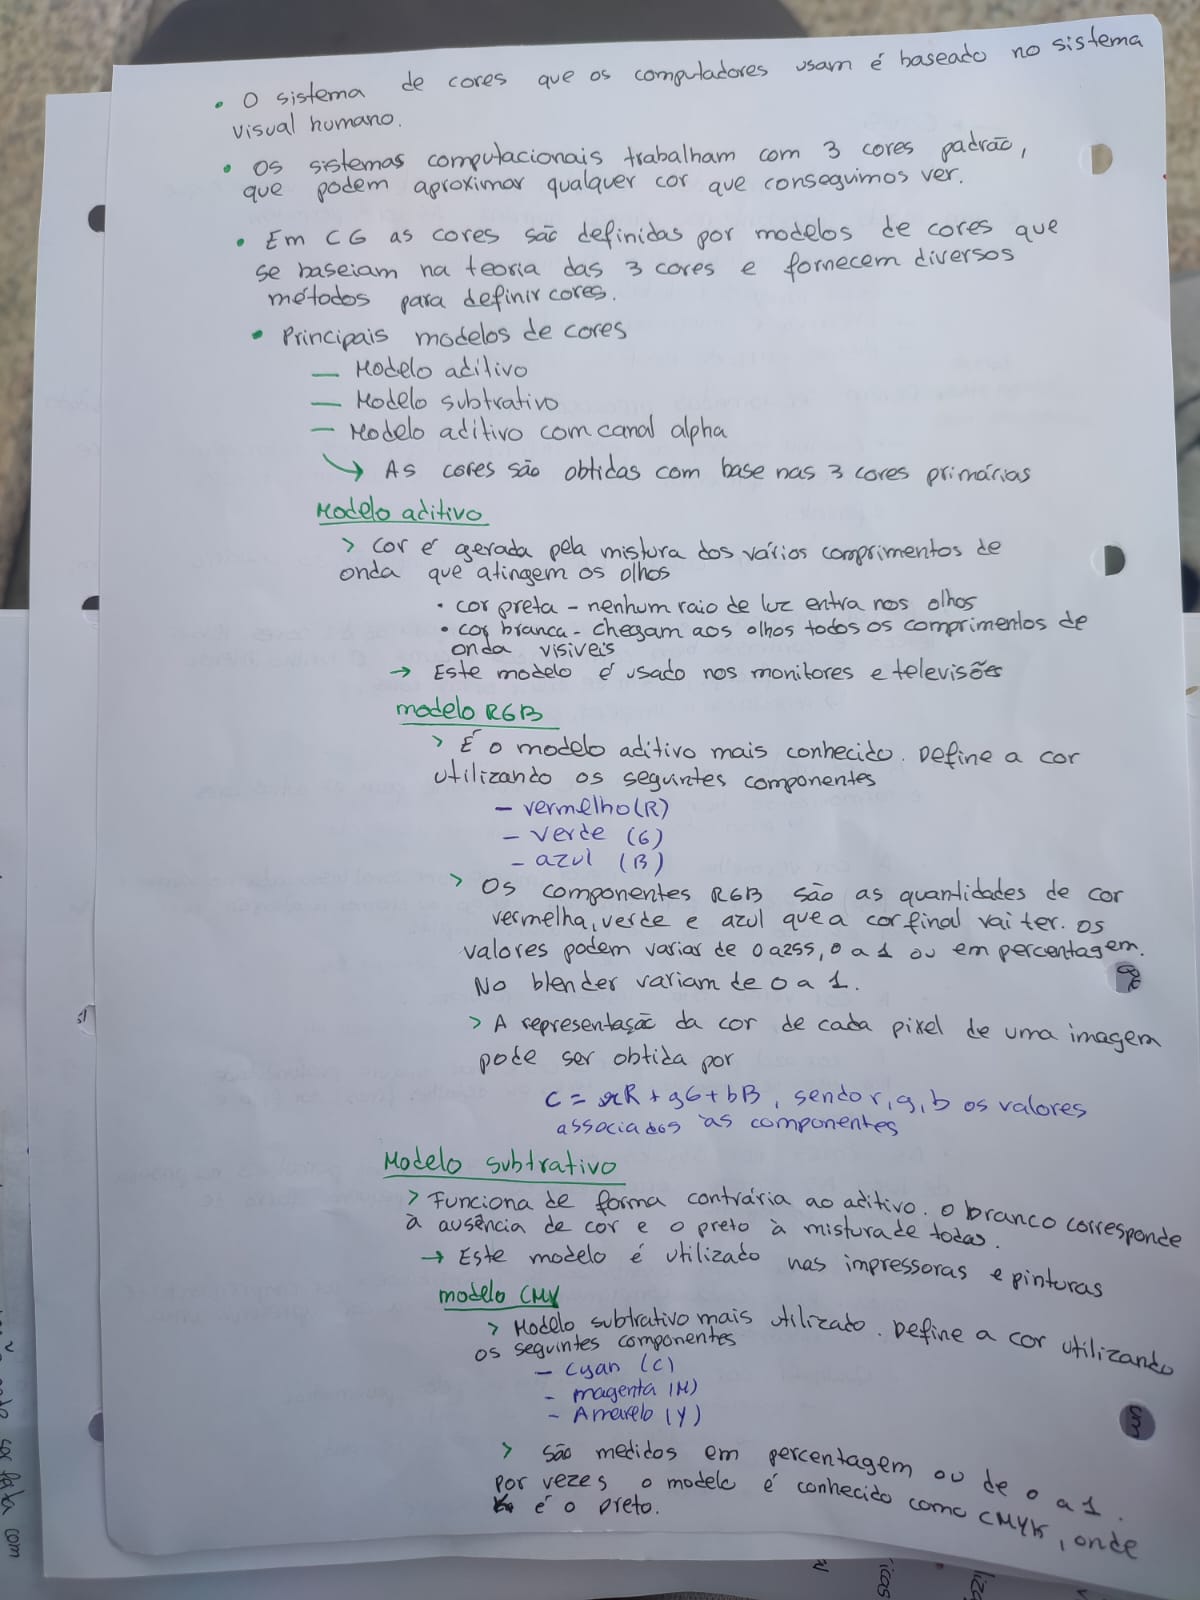 • O sistema de cores que os computadores usam é baseado no sistema
visual humano.
• Os sistemas computacionais trabalham com 3 cores padrão,
que podem aproximar qualquer cor que conseguimos ver.
• Em CG as cores são definidas por modelos de cores que
se baseiam na teoria das 3 cores e fornecem diversos
métodos para definir cores.
• Principais modelos de cores
— Modelo aditivo
— Modelo subtrativo
— Modelo aditivo com canal alpha
↳ As cores são obtidas com base nas 3 cores primárias
Modelo aditivo
> Cor é gerada pela mistura dos vários comprimentos de
onda que atingem os olhos
• cor preta - nenhum raio de luz entra nos olhos
• cor branca - chegam aos olhos todos os comprimentos de
onda visíveis
→ Este modelo é usado nos monitores e televisões
modelo RGB
> É o modelo aditivo mais conhecido. Define a cor
utilizando os seguintes componentes
- vermelho (R)
- verde (G)
- azul (B)
> Os componentes RGB são as quantidades de cor
vermelha, verde e azul que a cor final vai ter. Os
valores podem variar de 0 a 255, 0 a 1 ou em percentagem.
No blender variam de 0 a 1.
> A representação da cor de cada pixel de uma imagem
pode ser obtida por
C = rR + gG + bB, sendo r, g, b os valores
associados às componentes
Modelo subtrativo
> Funciona de forma contrária ao aditivo. O branco corresponde
à ausência de cor e o preto à mistura de todas.
→ Este modelo é utilizado nas impressoras e pinturas
modelo CMY
> Modelo subtrativo mais utilizado. Define a cor utilizando
os seguintes componentes
- Cyan (C)
- magenta (M)
- Amarelo (Y)
> São medidos em percentagem ou de 0 a 1.
Por vezes o modelo é conhecido como CMYK, onde
é o preto.
um
ser feita com